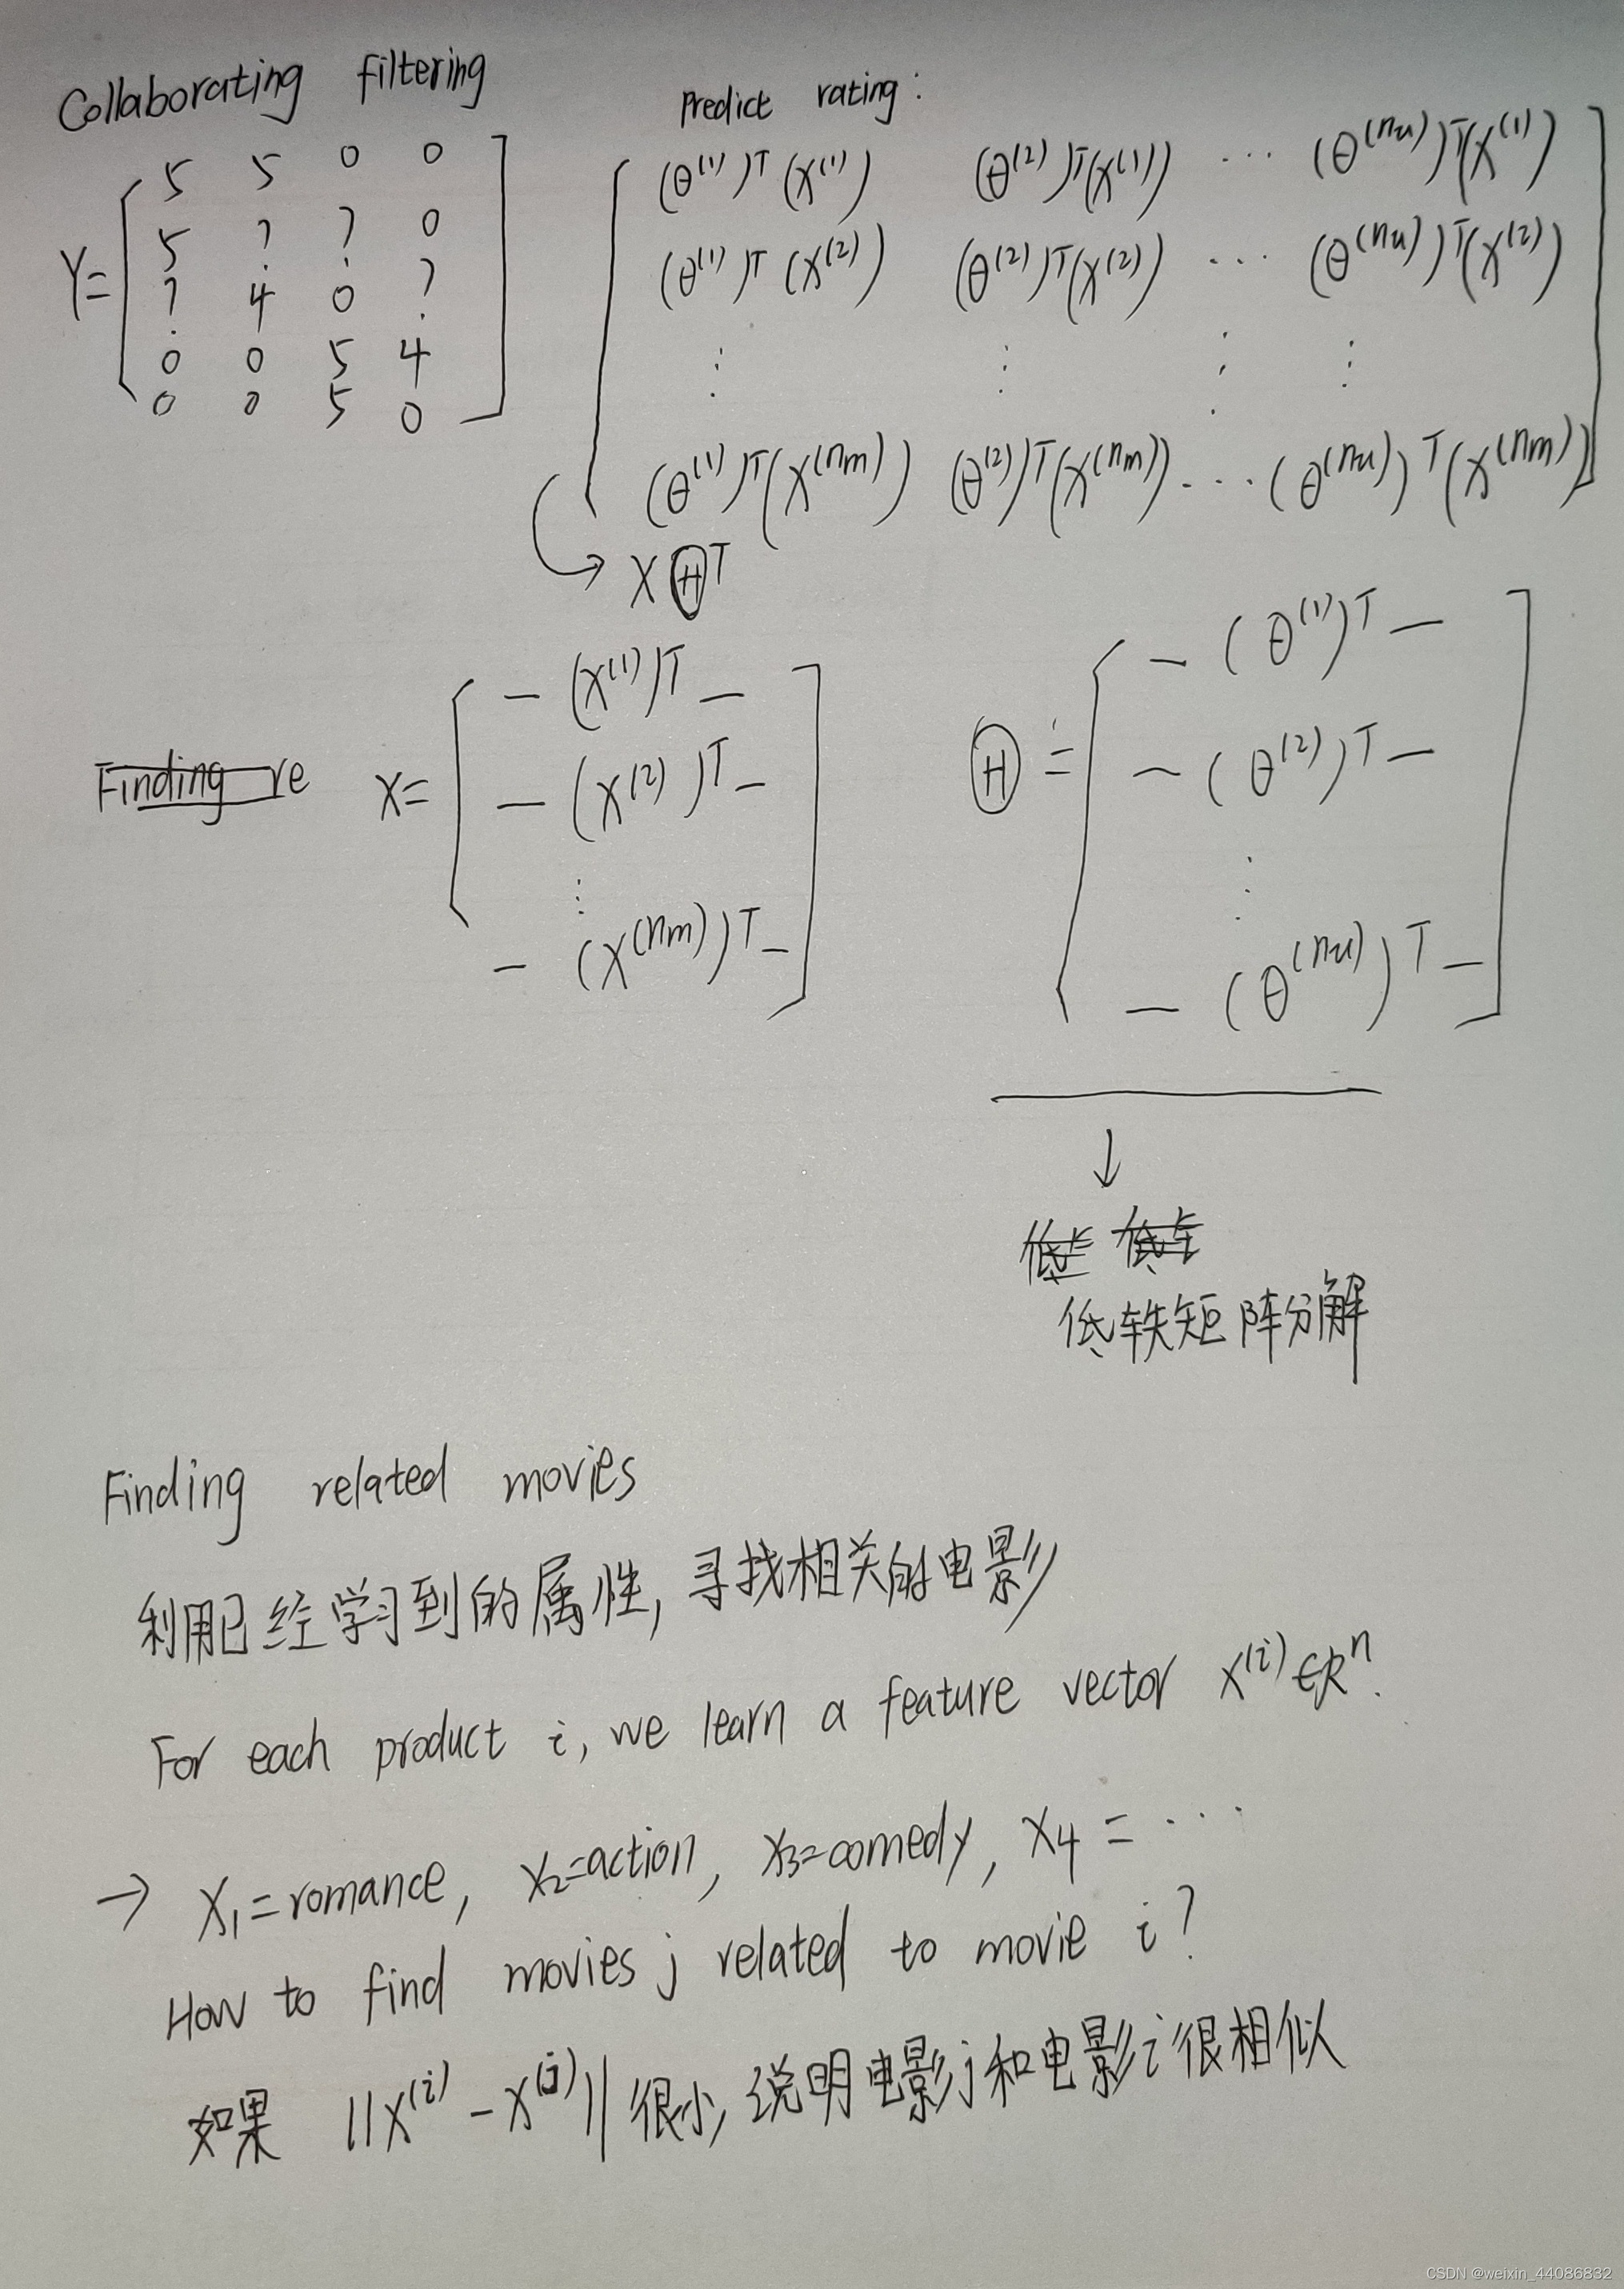 Collaborating filtering
Y= [ 5 5 0 0
5 ? ? 0
? 4 0 ?
0 0 5 4
0 0 5 0 ]
Predict rating:
[ (θ^(1))^T (x^(1)) (θ^(2))^T(x^(1)) ... (θ^(nu))^T(x^(1))
(θ^(1))^T (x^(2)) (θ^(2))^T(x^(2)) ... (θ^(nu))^T(x^(2))
⋮ ⋮ ⋱ ⋮
(θ^(1))^T(x^(nm)) (θ^(2))^T(x^(nm)) ... (θ^(nu))^T(x^(nm)) ]
→ XΘ^T
Finding re
X= [ — (x^(1))^T —
— (x^(2))^T —
⋮
— (x^(nm))^T — ]
Θ = [ — (θ^(1))^T —
— (θ^(2))^T —
⋮
— (θ^(nu))^T — ]
↓
低轶矩阵分解
Finding related movies
利用已经学习到的属性, 寻找相关的电影
For each product i, we learn a feature vector x^(i)∈R^n.
→ x₁=romance, x₂=action, x₃=comedy, x₄= ...
How to find movies j related to movie i?
如果 ||x^(i) - x^(j)|| 很小, 说明电影j和电影i很相似
CSDN @weixin_44086832